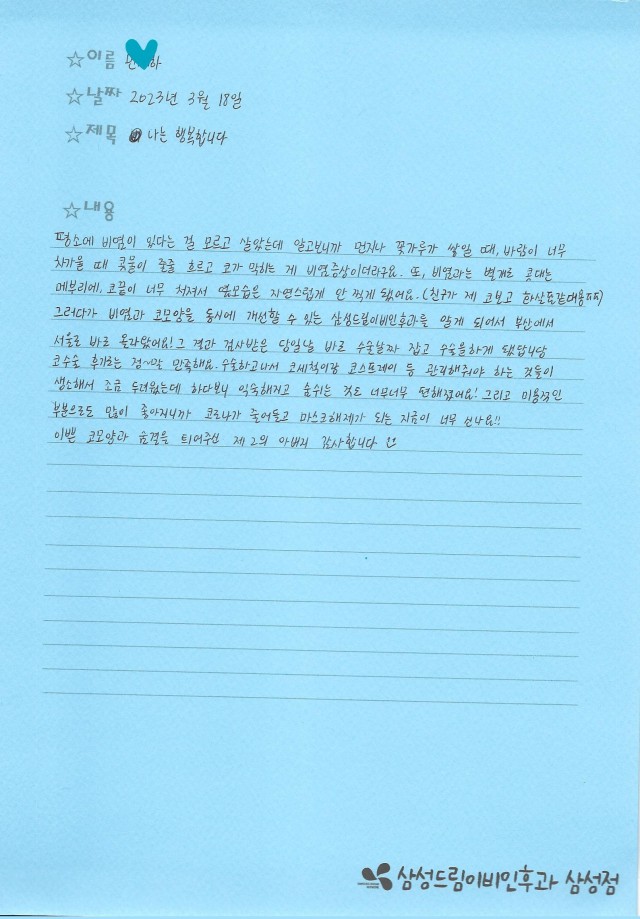 ☆이름
☆날짜 2023년 3월 18일
☆제목 나는 행복합니다
☆내용
평소에 비염이 있다는 걸 모르고 살았는데 알고보니까 먼지나 꽃가루가 쌓일 때, 바람이 너무
차가울 때 콧물이 줄줄 흐르고 코가 막히는 게 비염증상이더라구요. 또, 비염과는 별개로 콧대는
메부리에, 코끝이 너무 쳐져서 옆모습은 자연스럽게 안 찍게 됐어요. (친구가 제 코보고 화살표같대용ㅠㅠ)
그러다가 비염과 코모양을 동시에 개선할 수 있는 삼성드림이비인후과를 알게 되어서 부산에서
서울로 바로 올라왔어요! 그 결과 검사받은 당일날 바로 수술날짜 잡고 수술을하게 됐답니당
코수술 후기로는 정~말 만족해요. 수술하고나서 코세척이랑 코스프레이 등 관리해줘야 하는 것들이
생소해서 조금 두려웠는데 하다보니 익숙해지고 숨쉬는 것도 너무너무 편해졌어요! 그리고 미용적인
부분으로도 많이 좋아지니까 코로나가 줄어들고 마스크해제가 되는 지금이 너무 신나요!!
이쁜 코모양과 숨결을 틔어주신 제 2의 아버지 감사합니다
삼성드림이비인후과 삼성점